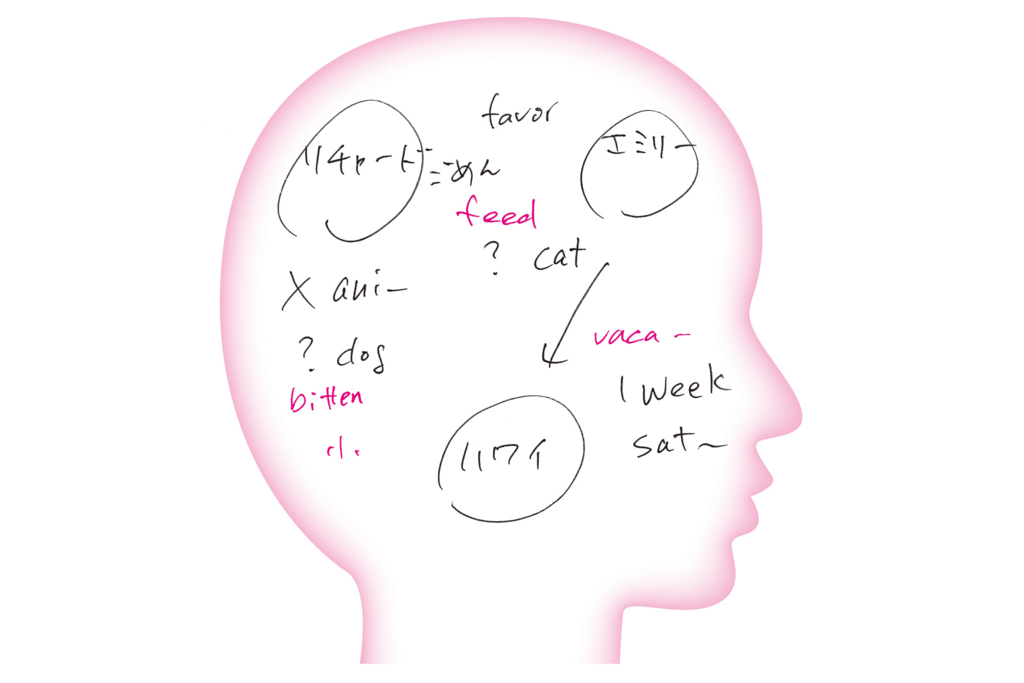 favor
リチャード
エミリー
ごめん
feed
? cat
X ani–
? dog
bitten
vaca –
1 week
sat~
ハワイ